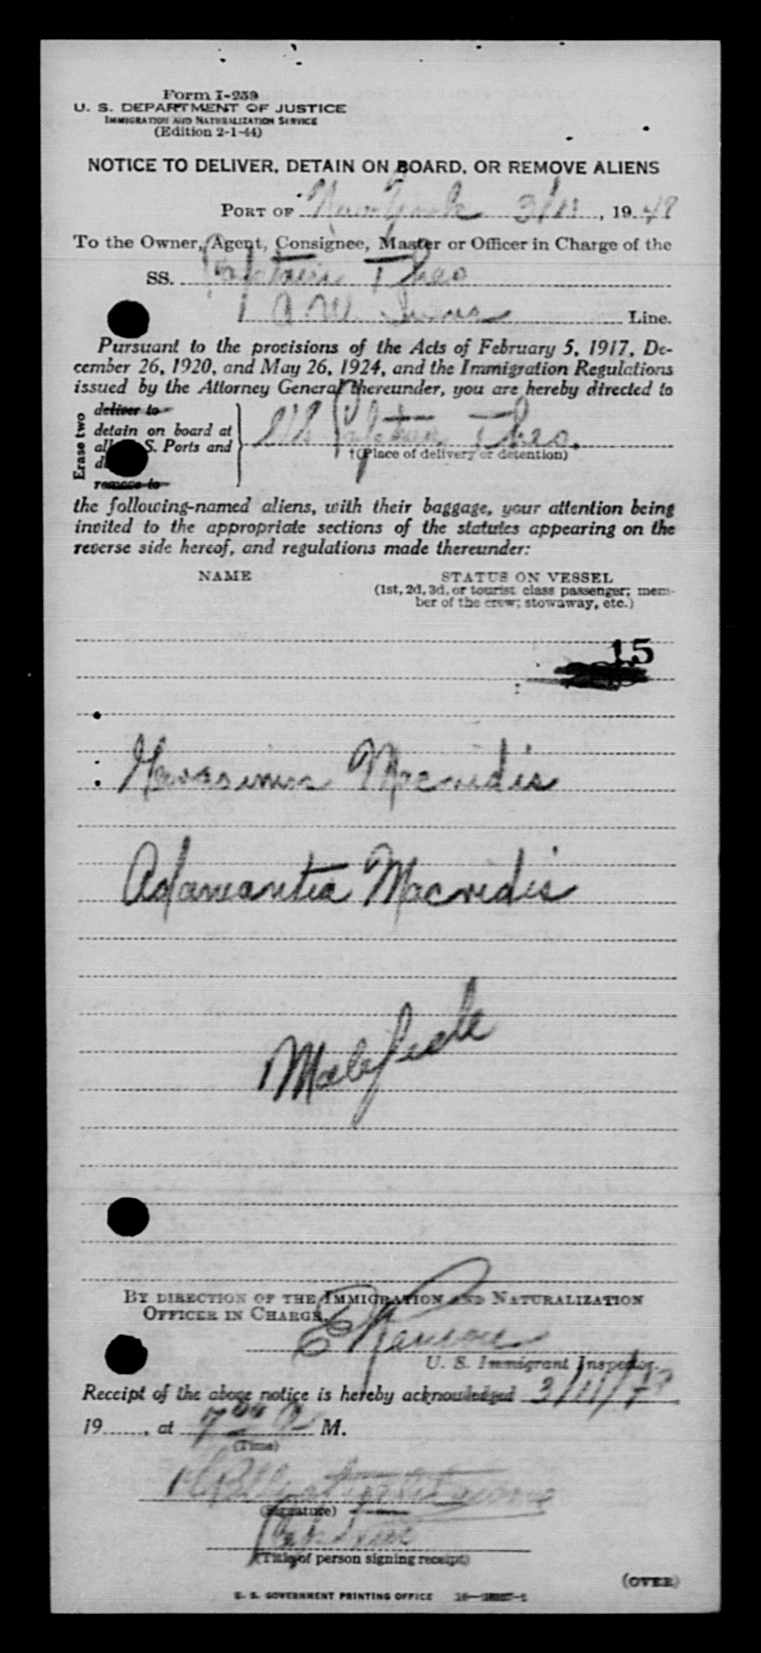 Form I-259
U. S. DEPARTMENT OF JUSTICE
IMMIGRATION AND NATURALIZATION SERVICE
(Edition 2-1-44)
NOTICE TO DELIVER, DETAIN ON BOARD, OR REMOVE ALIENS
PORT OF New York 3/11, 1948
To the Owner, Agent, Consignee, Master or Officer in Charge of the
SS. Captain Theo
Line.
Pursuant to the provisions of the Acts of February 5, 1917, De-
cember 26, 1920, and May 26, 1924, and the Immigration Regulations
issued by the Attorney General thereunder, you are hereby directed to
Erase two
deliver to
detain on board at
all U. S. Ports and
SS Captain Theo.
†(Place of delivery or detention)
remove to
the following-named aliens, with their baggage, your attention being
invited to the appropriate sections of the statutes appearing on the
reverse side hereof, and regulations made thereunder:
NAME STATUS ON VESSEL
(1st, 2d, 3d, or tourist class passenger; mem-
ber of the crew; stowaway, etc.)
15
Gerasimos Macridis
Adamantia Macridis
Malafide
BY DIRECTION OF THE IMMIGRATION AND NATURALIZATION
OFFICER IN CHARGE
U. S. Immigrant Inspector.
Receipt of the above notice is hereby acknowledged 3/11/48
19......, at 7 00 A M.
(Time)
(Signature)
Captain
(Title of person signing receipt)
(OVER)
U. S. GOVERNMENT PRINTING OFFICE